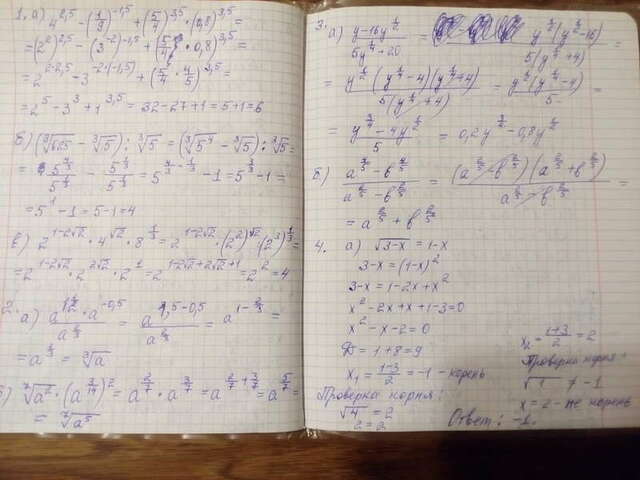 1. а) 4^{2,5} - (1/9)^{-1,5} + (5/4)^{3,5} · (0,8)^{3,5} =
= (2^2)^{2,5} - (3^{-2})^{-1,5} + (5/4 · 0,8)^{3,5} =
= 2^{2·2,5} - 3^{-2·(-1,5)} + (5/4 · 4/5)^{3,5} =
= 2^5 - 3^3 + 1^{3,5} = 32-27+1 = 5+1 = 6
б) (∛625 - ∛5) : ∛5 = (∛5^4 - ∛5) : ∛5 =
= 5^{4/3}/5^{1/3} - 5^{1/3}/5^{1/3} = 5^{4/3 - 1/3} - 1 = 5^{3/3} - 1 =
= 5^1 - 1 = 5-1 = 4
в) 2^{1-2√2} · 4^{√2} · 8^{1/3} = 2^{1-2√2} · (2^2)^{√2} · (2^3)^{1/3} =
= 2^{1-2√2} · 2^{2√2} · 2^1 = 2^{1-2√2+2√2+1} = 2^2 = 4
2. а)
= a^{1/3} = ∛a
б) ⁷√a^2 · (a^{3/14})^2 = a^{2/7} · a^{3/7} = a^{2/7 + 3/7} = a^{5/7} =
= ⁷√a^5
3. а) (y-16y^{1/2})/(5y^{1/4}+20) = y^{1/2}(y^{1/2}-16)/5(y^{1/4}+4) =
= y^{1/2}(y^{1/4}-4)(y^{1/4}+4)/5(y^{1/4}+4) = y^{1/2}(y^{1/4}-4)/5 =
= (y^{3/4} - 4y^{1/2})/5 = 0,2y^{3/4} - 0,8y^{1/2}
б) (a^{4/5} - b^{4/5})/(a^{2/5} - b^{2/5}) = (a^{2/5} - b^{2/5})(a^{2/5} + b^{2/5})/(a^{2/5} - b^{2/5}) =
= a^{2/5} + b^{2/5}
4. а) √3-x = 1-x
3-x = (1-x)^2
3-x = 1-2x+x^2
x^2 - 2x + x + 1 - 3 = 0
x^2 - x - 2 = 0
D = 1+8 = 9
x_1 = (1-3)/2 = -1 - корень
Проверка корня:
√4 = 2
2 = 2
x_2 = (1+3)/2 = 2
Проверка корня:
√1 ≠ -1
x = 2 - не корень
Ответ: -1.